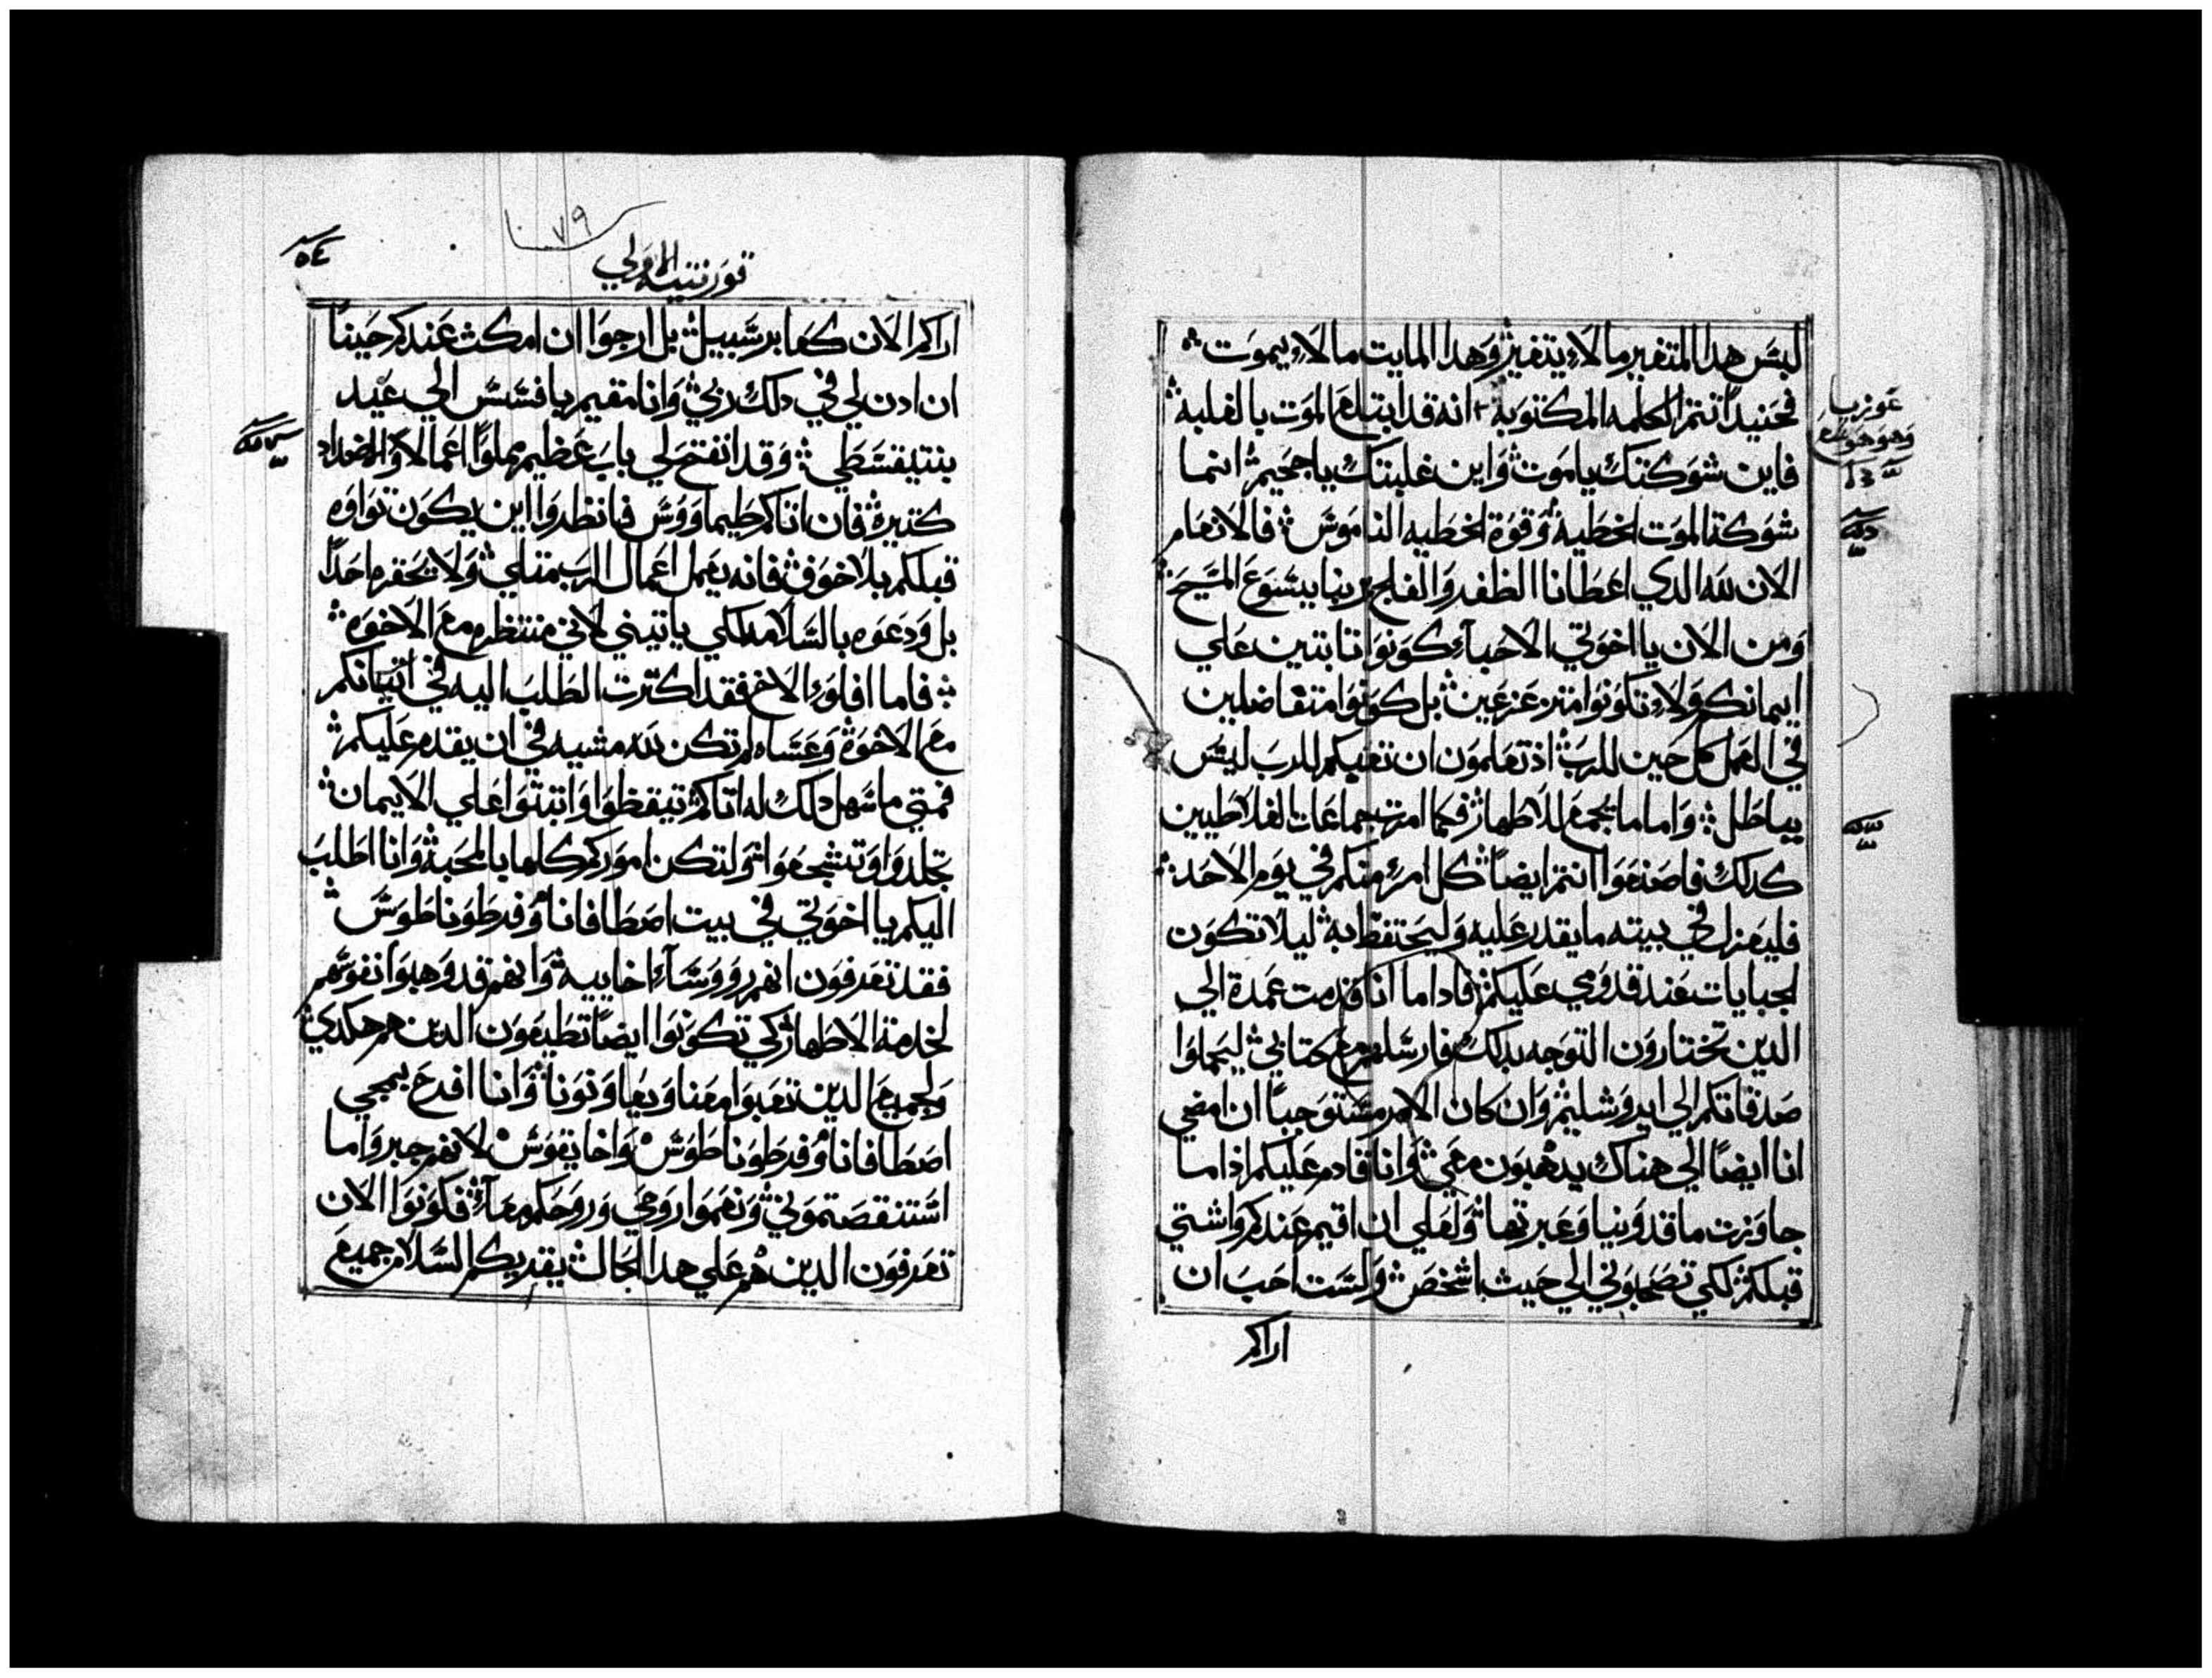 لبس هدا المتغير ما لا يتغير وهدا المايت ما لا يموت
فحنيد انتم الكلمه المكتوبة انه قد ابتلع الموت بالغلبة
فاين شوكتك يا موت واين غلبتك يا جحيم انما
شوكة الموت الخطية وقوة الخطيه الناموس فالانعام
الان لله الدي اعطانا الظفر والفلج بربنا يسوع المسيح
ومن الان يا اخوتي الاحباء كونوا تابتين علي
ايمانكم ولا تكونوا متزعزعين بل كونوا متفاضلين
في العمل كل حين للرب اذ تعلمون ان تعبكم للرب ليس
بباطل واما ما تجمع للاطهار فكما امرت جماعات الغلاطيين
كدلك فاصنعوا انتم ايضاً كل امرء منكم في يوم الاحد
فليعزل في بيته ما يقدر عليه وليحتفظ به ليلا تكون
لجبايات عند قدومي عليكم فاداما انا قدمت عمدة الي
الدين تختارون التوجه بدلك فارسلهم مع كتابي ليحملوا
صدقاتكم الي ايروشليم وان كان الامر مستوجباً ان امضي
انا ايضاً الي هناك يدهبون معي وانا قادم عليكم اذا ما
جاوزت ماقدونيا وعبرتها ولعلي ان اقيم عندكم واشتي
قبلكم لكي تصحبوني الي حيث اشخص ولست احب ان
اراكم
عوزيا
دميه
٥٤
٧٩
قورنتيه الاولي
اراكم الان كعابر سبيل بل ارجوا ان امكث عندكم حيناً
ان ادن لي في دلك ربي وانا مقيم بافسس الي عيد
بنتيقسطي وقد انفتح لي باب عظيم مملواً اعمالا والاضداد
كتيرة فان اتاكم طيماووس فانظروا اين يكون تواوه
قبلكم بلا خوف فانه يعمل اعمال الرب متلي ولا يحقره احداً
بل ودعوه بالسلامه لكي ياتيني لاني منتظره مع الاخوه
فاما افلوء الاخ فقد اكترت الطلب اليه في اتيانكم
مع الاخوة وعساه لم تكن لله مشيه في ان يقدم عليكم
فمتي ما سهل دلك له اتاكم تيقظوا واتبتوا علي الايمان
تجلدوا وتشجعوا ولتكن اموركم كلها بالمحبة وانا اطلب
اليكم يا اخوتي في بيت اصطافانا وفرطوناطوس
فقد تعرفون انهم رووساء اخاييه وانهم قد وهبوا نفوسهم
لخدمة الاطهار كي تكونوا ايضاً تطيعون الدين هم هكدي
ولجميع الدين تعبوا معنا ويعاونونا وانا افرح بمجي
اصطافانا وفرطوناطوس واخايقوس لانهم جبروا ما
استنقصتموني ونعموا روحي وروحكم معاً فكونوا الان
تعرفون الدين هم علي هدا الحال يقريكم السلام جميع